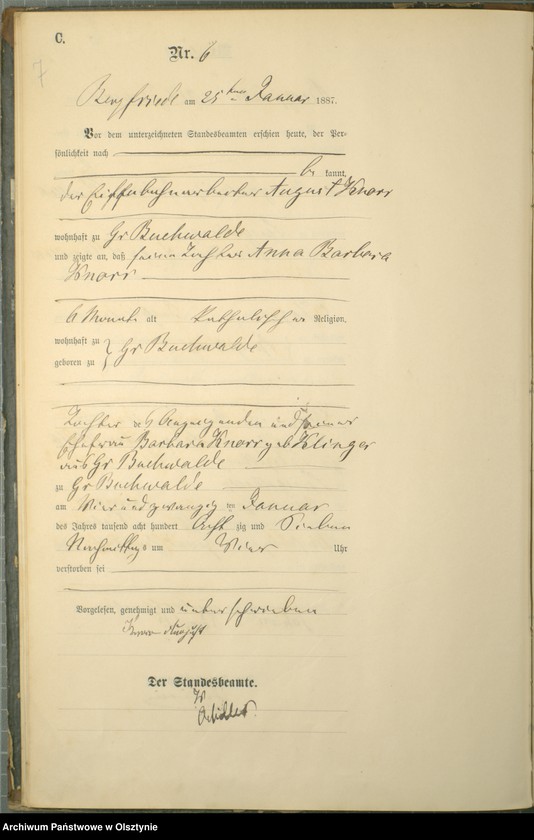 C.
Nr. 6
7
Bergfriede am 25ten Januar 1887.
Vor dem unterzeichneten Standesbeamten erschien heute, der Per-
sönlichkeit nach
be kannt,
der Eisenbahnarbeiter August Knorr
wohnhaft zu Gr Buchwalde
und zeigte an, daß seine Tochter Anna Barbara
Knorr
6 Monate alt katholischer Religion,
wohnhaft zu } Gr Buchwalde
geboren zu
Tochter des Anzeigenden und seiner
Ehefrau Barbara Knorr geb Klinger
aus Gr Buchwalde
zu Gr Buchwalde
am Vier und zwanzig ten Januar
des Jahres tausend acht hundert Acht zig und Sieben
Nachmittags um Vier Uhr
verstorben sei
Vorgelesen, genehmigt und unterschrieben
Knorr August
Der Standesbeamte.